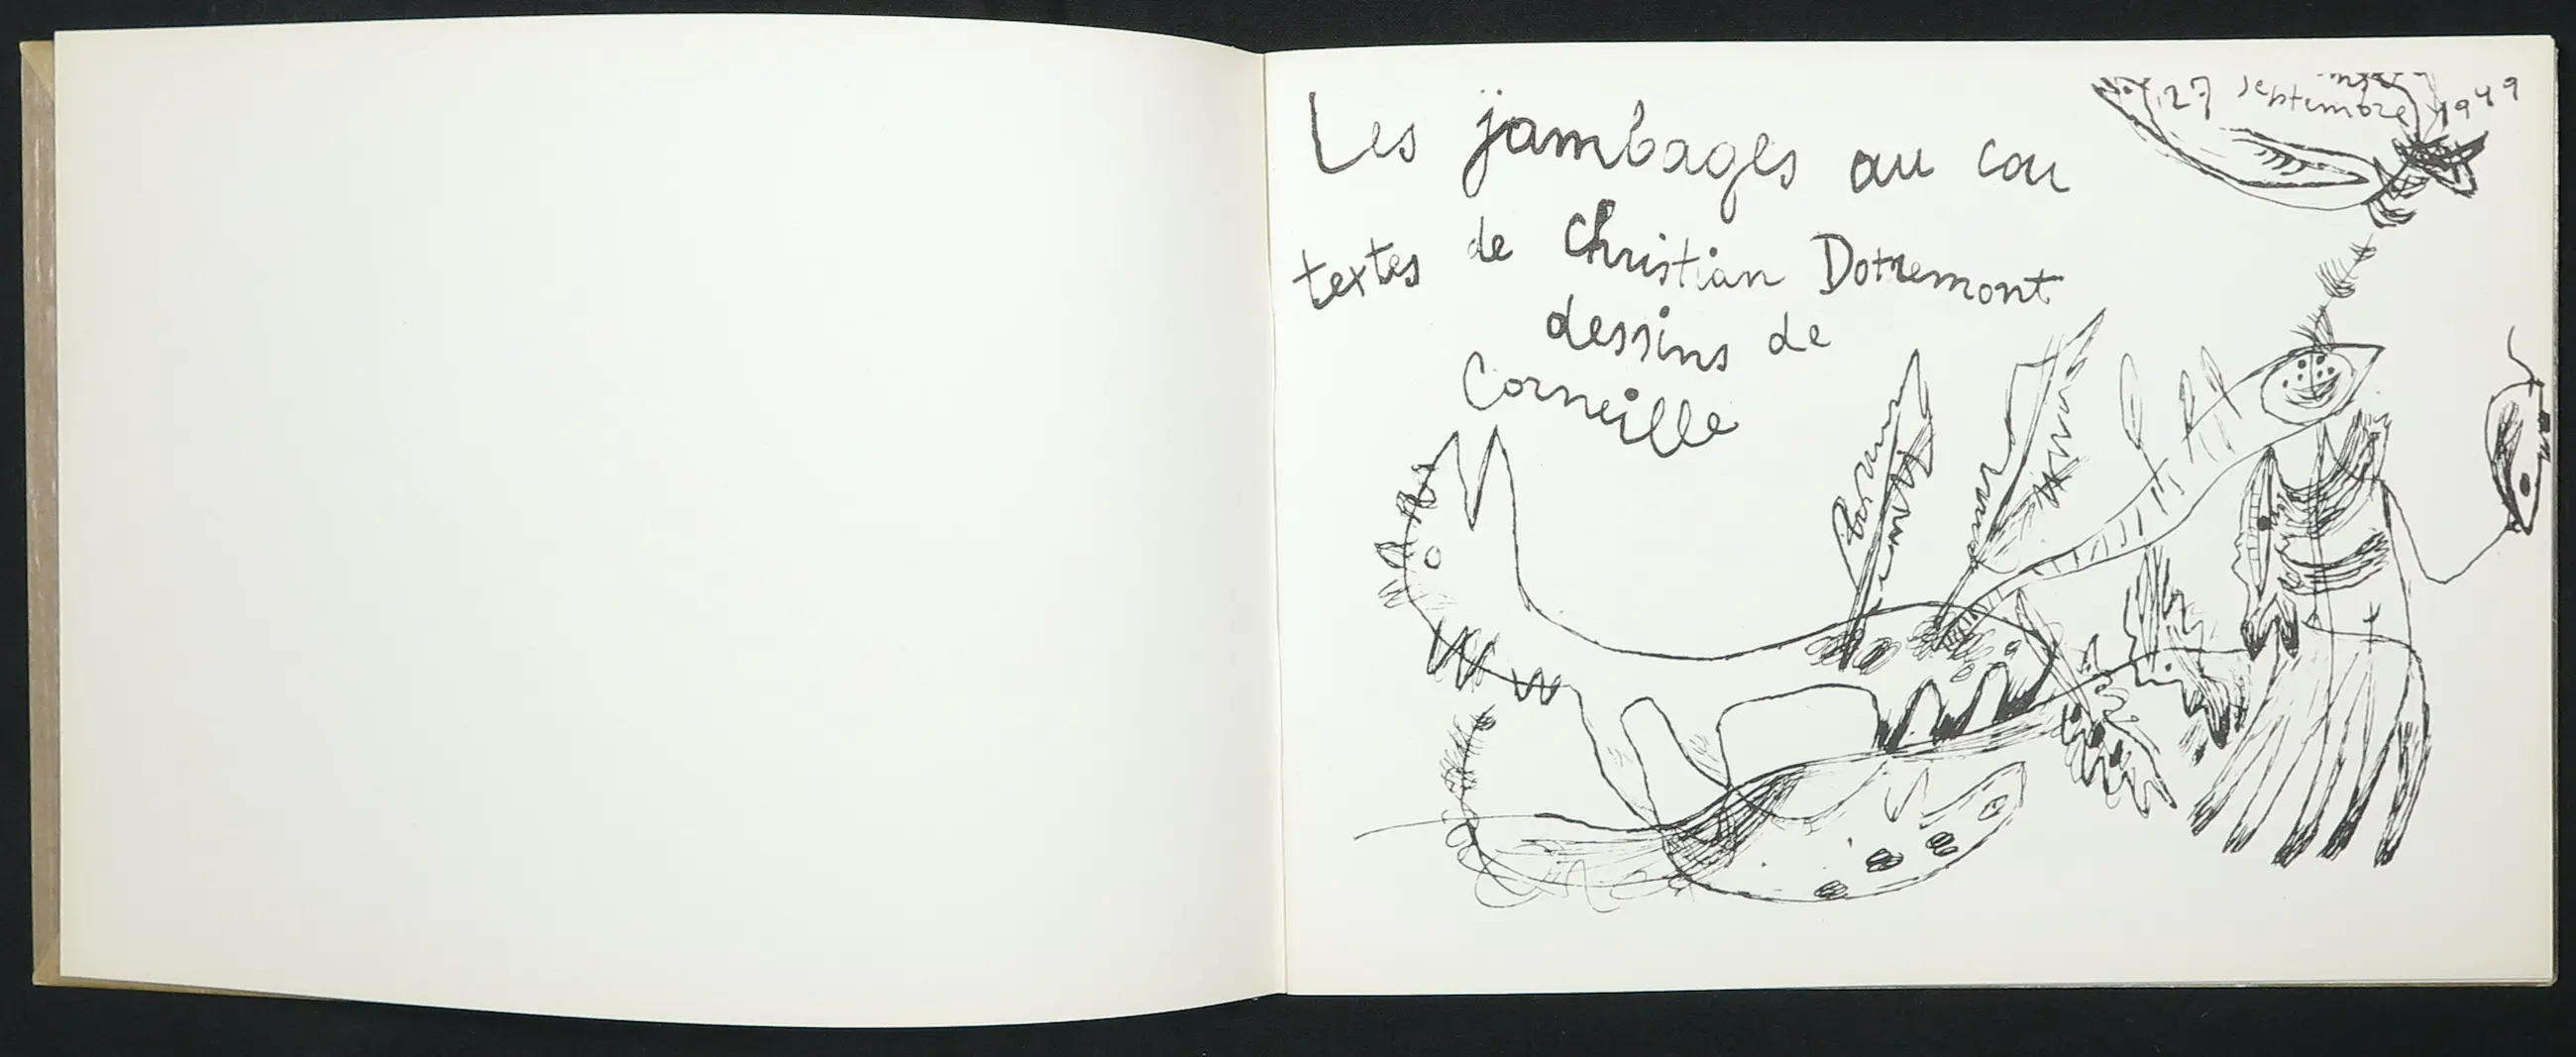 27 septembre 1949
Les jambages au cou
textes de Christian Dotremont
dessins de
Corneille